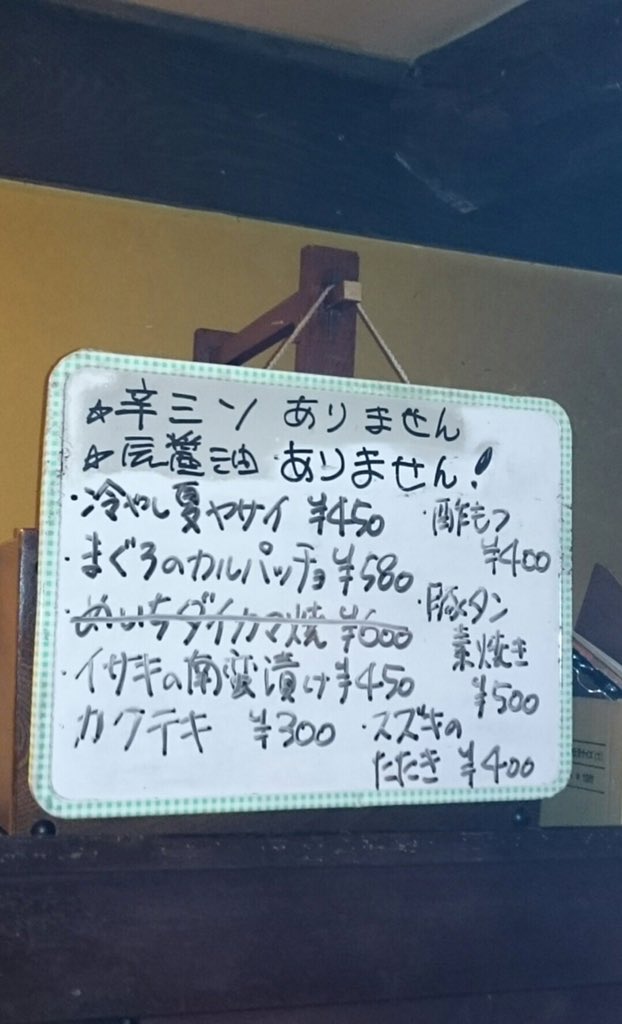 ☆辛ミソ ありません
☆辰醬油 ありません!
・冷やし夏ヤサイ ¥450
・まぐろのカルパッチョ ¥580
・めいちダイカマ焼 ¥600
・イサキの南蛮漬け ¥450
カクテキ ¥300
・酢もつ
¥400
・豚タン
素焼き
¥500
・スズキの
たたき ¥400